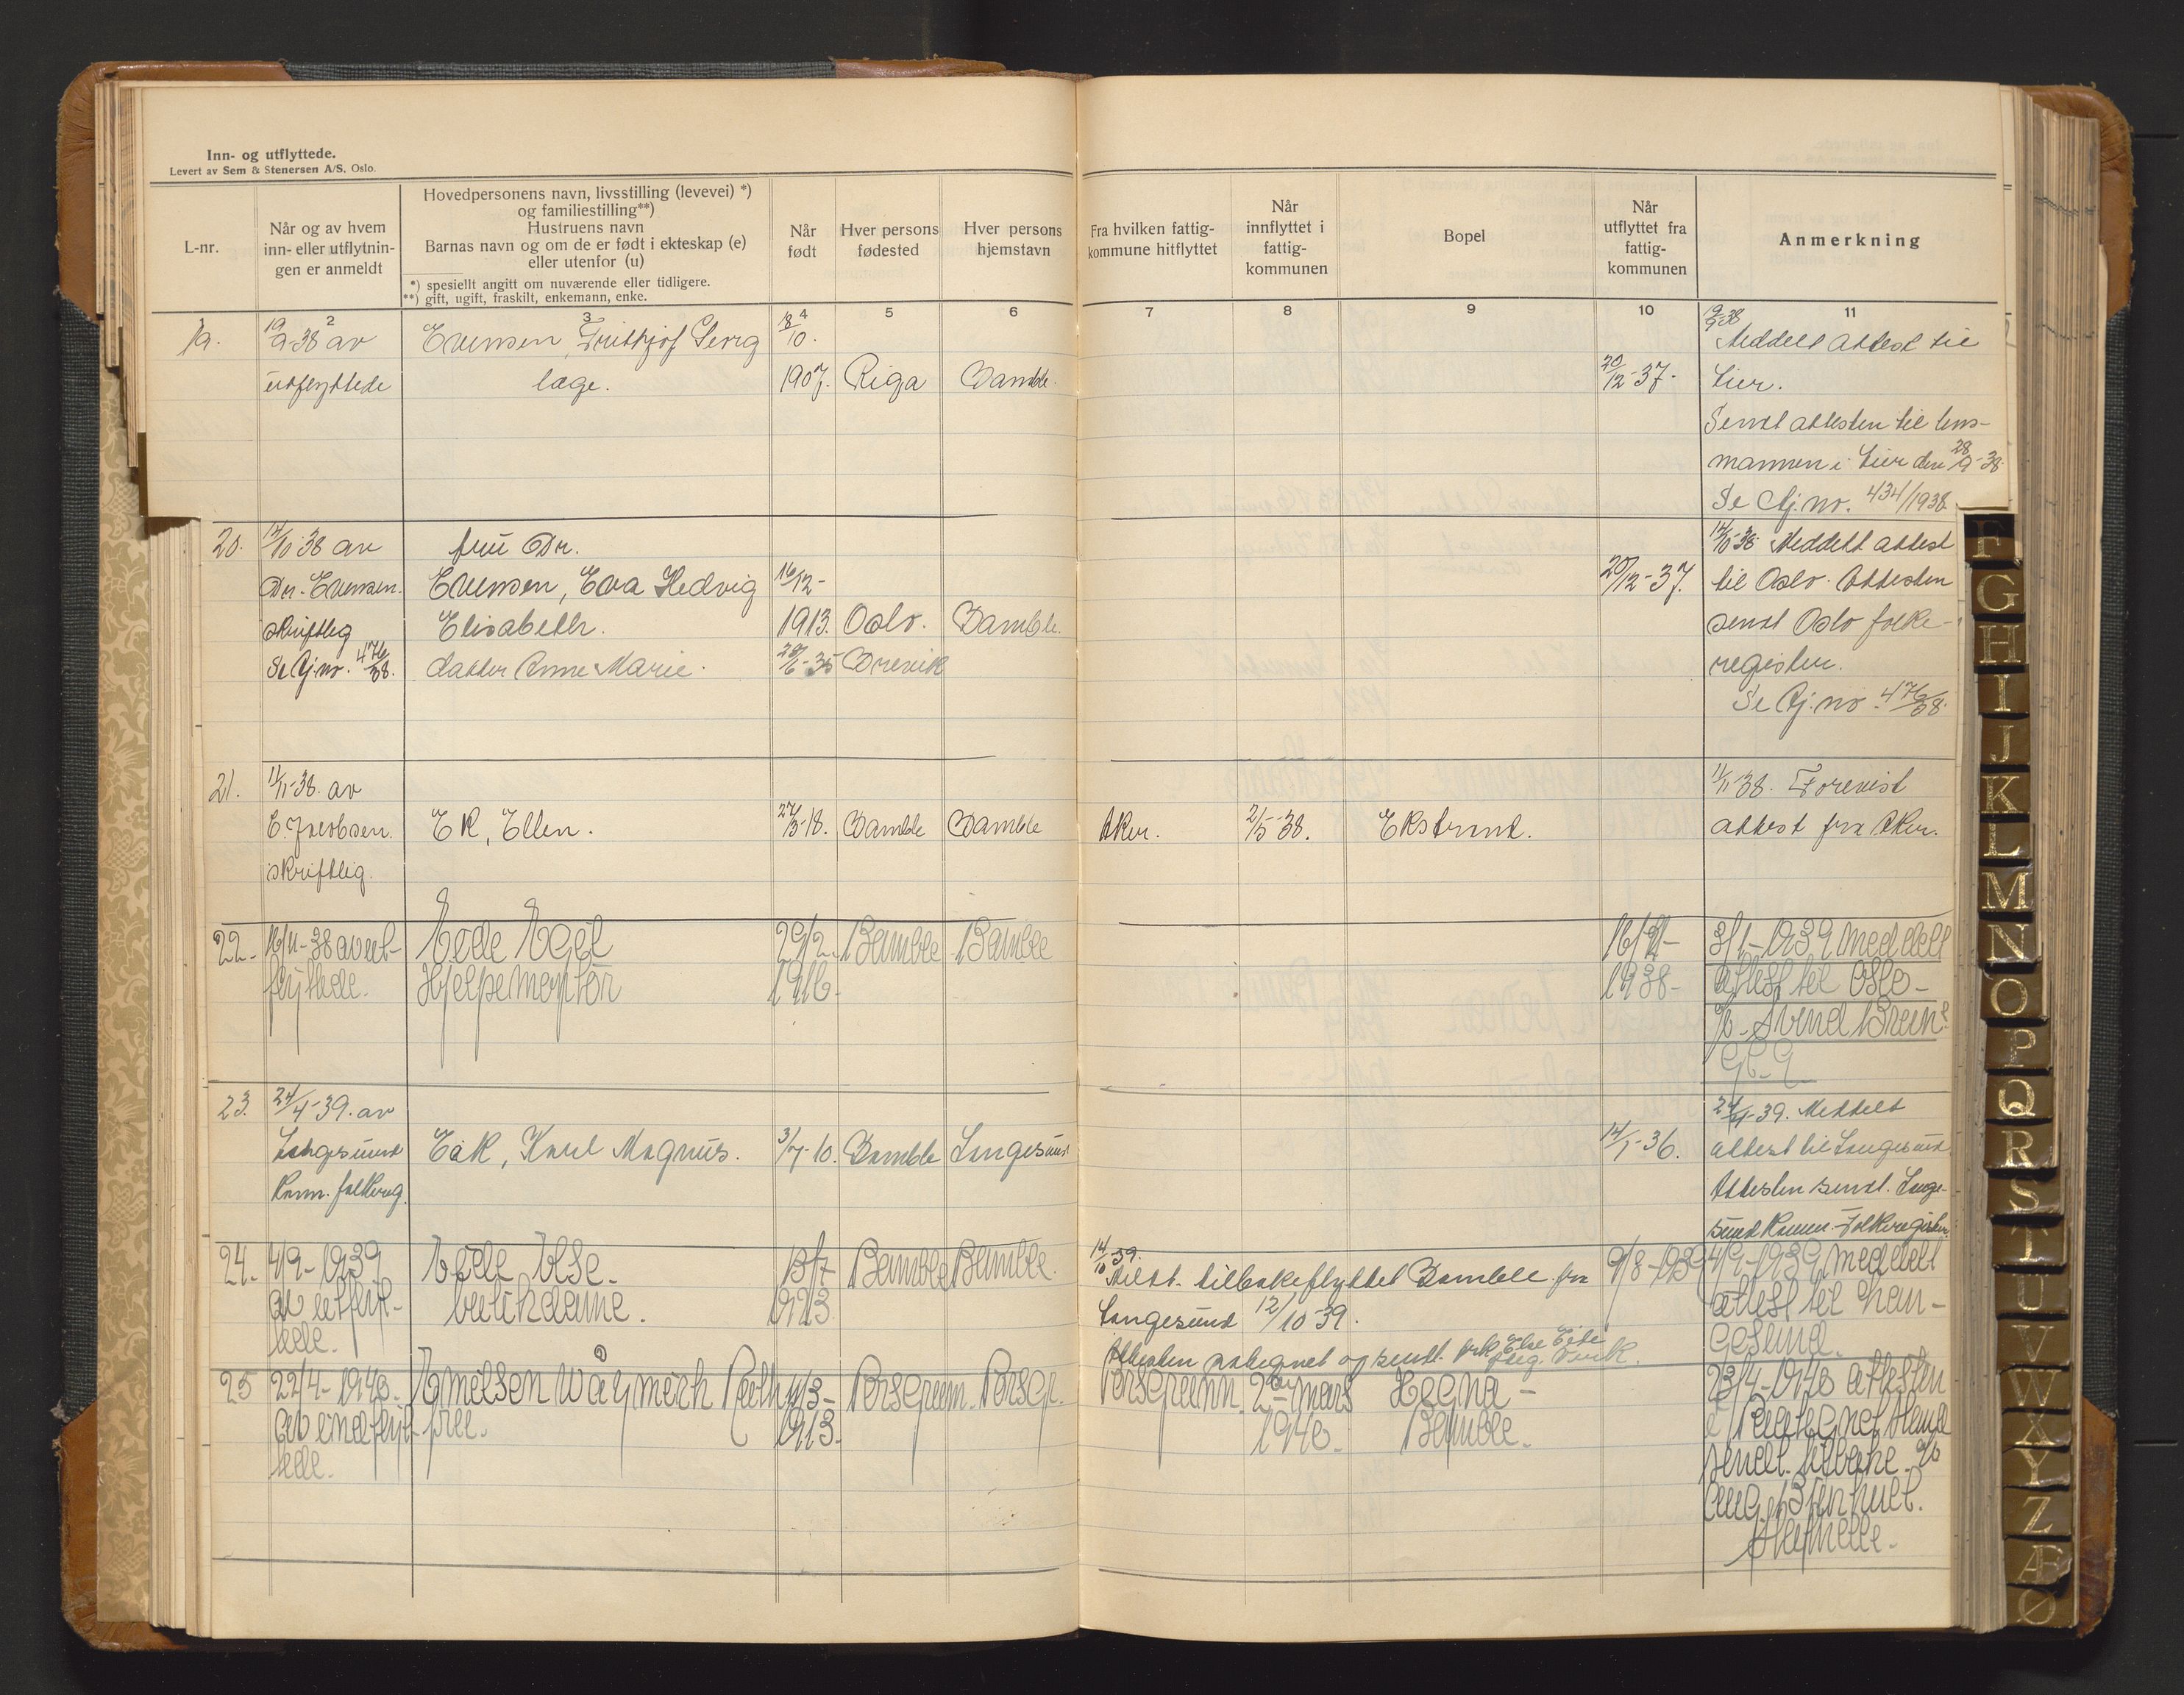 Inn- og utflyttede.
Levert av Sem & Stenersen A/S, Oslo.
L-nr.
Når og av hvem
inn- eller utflytnin-
gen er anmeldt
Hovedpersonens navn, livsstilling (levevei) *)
og familiestilling**)
Hustruens navn
Barnas navn og om de er født i ekteskap (e)
eller utenfor (u)
*) spesiellt angitt om nuværende eller tidligere.
**) gift, ugift, fraskilt, enkemann, enke.
Når
født
Hver persons
fødested
Hver persons
hjemstavn
Fra hvilken fattig-
kommune hitflyttet
Når
innflyttet i
fattig-
kommunen
Bopel
Når
utflyttet fra
fattig-
kommunen
Anmerkning
1 2 3 4 5 6 7 8 9 10 11
19. 19/9-38 av Evensen, Fridtjof Georg 18/10. 19/9-38 Meddelt attest til
utflyttede læge. 1907. Riga Bamble. 20/12-37. Lier.
Sendt attesten til lens-
mannen i Lier den 28/9-38.
Se Kj. no. 434/1938
20. 17/10-38 av fru Dr. 17/10-38 Meddelt attest
Dr. Evensen. Evensen, Eva Hedvig 16/12- 20/12-37. til Oslo. Attesten
skriftlig Elisabeth. 1913. Oslo. Bamble. sendt Oslo folke-
Se Kj. no. 476/38. datter Anne Marie. 28/6-35 Brevik register.
Se Kj. no. 476/38.
21. 11/11-38. av 11/11-38. Forevist
E. Jacobsen. Ek, Ellen. 27/3-18. Bamble Bamble Aker. 2/5-38. Ekstrand. attest fra Aker.
skriftlig.
22. 16/11-38 av ut- Eode Egil 29/2. Bamble Bamble 3/1-1939 meddelt
flyttede. Hjelpemontør 1916. 1938- attest til Oslo-
Svend
23. 24/4-39. av 24/4-39. Meddelt
Langesund Eek, Karl Magnus. 3/7-10. Bamble Langesund 14/1-36. attest til Langesund
Kom. folkereg. Attesten sendt. Lange-
sund Komm. Folkeregister.
24. 4/9-1939 Eode Else- 13/7- Bamble Bamble. 14/10 39. 9/8-1939 4/9-1939 meddelt
av utflyt- butikdame. 1923 Meldt. tilbakeflyttet Bamble fra attest til Lan-
tede. Langesund 12/10 39. gesund.
Attesten påtegnet og sendt frk Else Eide
25 22/4-1940. Emelsen Waymork Ruth 11/3- Porsgrunn. Porsgr. Porsgrunn 2den mars Hegna- 23/4-1940 attesten
av indflyt- frue. 1913. 1940. Bamble.
tede. sendt tilbake